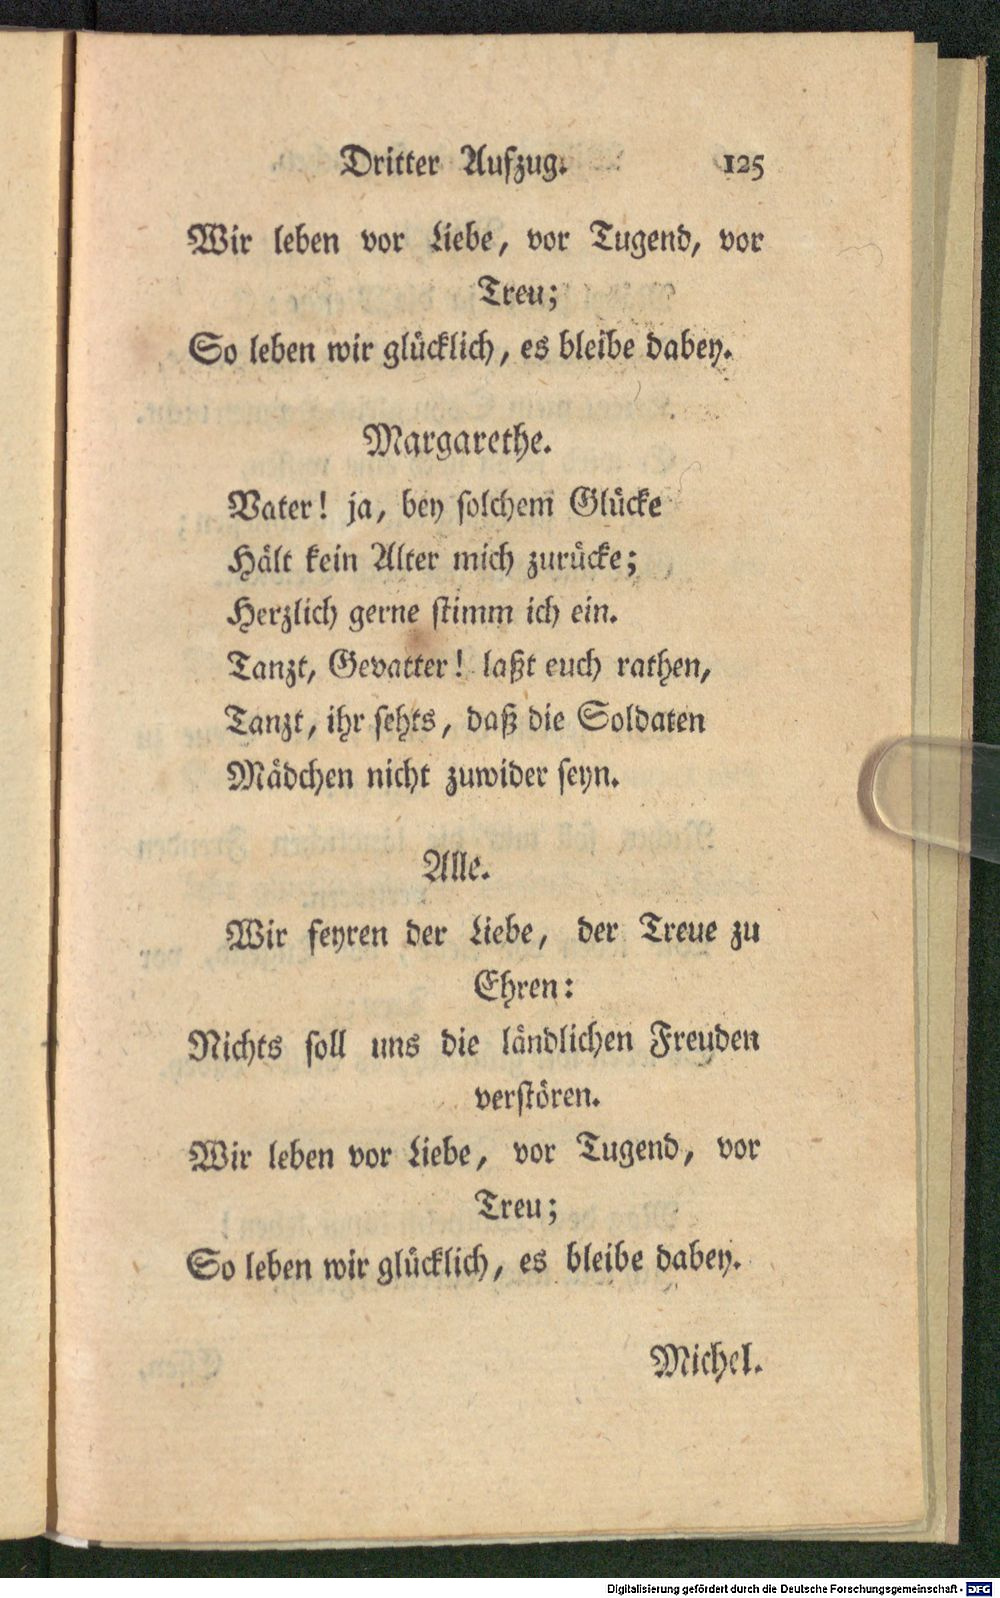 Dritter Aufzug. 125
Wir leben vor Liebe, vor Tugend, vor
Treu;
So leben wir glücklich, es bleibe dabey.
Margarethe.
Vater! ja, bey solchem Glücke
Hält kein Alter mich zurücke;
Herzlich gerne stimm ich ein.
Tanzt, Gevatter! laßt euch rathen,
Tanzt, ihr sehts, daß die Soldaten
Mädchen nicht zuwider seyn.
Alle.
Wir feyren der Liebe, der Treue zu
Ehren:
Nichts soll uns die ländlichen Freuden
verstören.
Wir leben vor Liebe, vor Tugend, vor
Treu;
So leben wir glücklich, es bleibe dabey.
Michel.
Digitalisierung gefördert durch die Deutsche Forschungsgemeinschaft - DFG